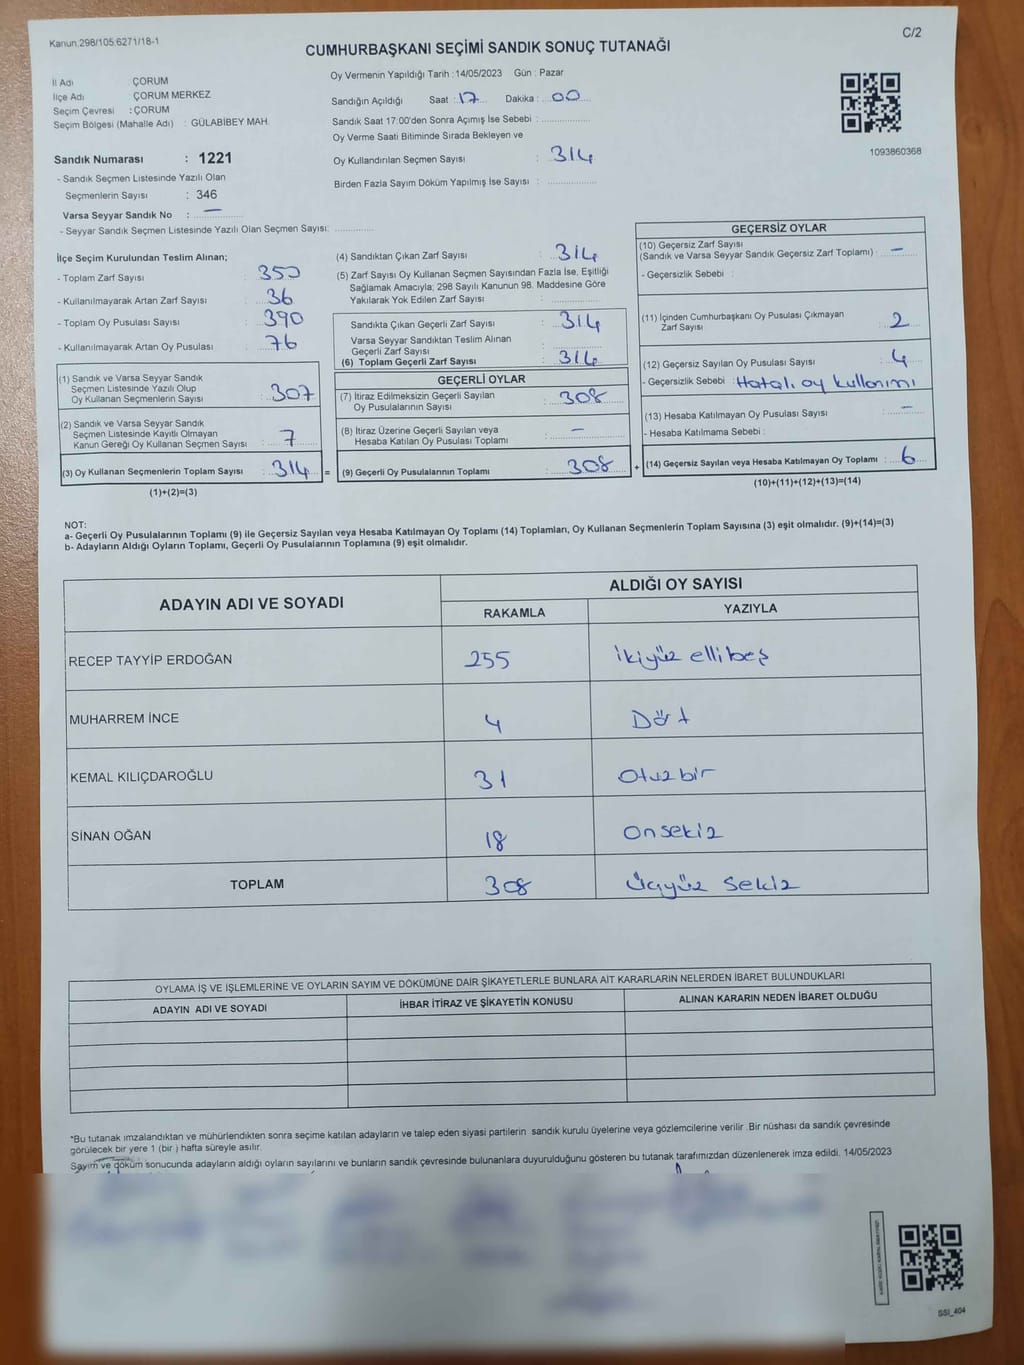 Kanun.298/105.6271/18-1
C/2
CUMHURBAŞKANI SEÇİMİ SANDIK SONUÇ TUTANAĞI
İl Adı : ÇORUM
İlçe Adı : ÇORUM MERKEZ
Seçim Çevresi : ÇORUM
Seçim Bölgesi (Mahalle Adı) : GÜLABİBEY MAH.
Sandık Numarası : 1221
- Sandık Seçmen Listesinde Yazılı Olan
Seçmenlerin Sayısı : 346
Varsa Seyyar Sandık No : —
- Seyyar Sandık Seçmen Listesinde Yazılı Olan Seçmen Sayısı:
Oy Vermenin Yapıldığı Tarih : 14/05/2023 Gün : Pazar
Sandığın Açıldığı Saat : 17 Dakika : 00
Sandık Saat 17:00'den Sonra Açımış İse Sebebi :
Oy Verme Saati Bitiminde Sırada Bekleyen ve
Oy Kullandırılan Seçmen Sayısı : 314
Birden Fazla Sayım Döküm Yapılmış İse Sayısı :
1093860368
İlçe Seçim Kurulundan Teslim Alınan;
- Toplam Zarf Sayısı : 350
- Kullanılmayarak Artan Zarf Sayısı : 36
- Toplam Oy Pusulası Sayısı : 390
- Kullanılmayarak Artan Oy Pusulası : 76
(1) Sandık ve Varsa Seyyar Sandık
Seçmen Listesinde Yazılı Olup
Oy Kullanan Seçmenlerin Sayısı : 307
(2) Sandık ve Varsa Seyyar Sandık
Seçmen Listesinde Kayıtlı Olmayan
Kanun Gereği Oy Kullanan Seçmen Sayısı : 7
(3) Oy Kullanan Seçmenlerin Toplam Sayısı : 314
(1)+(2)=(3)
(4) Sandıktan Çıkan Zarf Sayısı : 314
(5) Zarf Sayısı Oy Kullanan Seçmen Sayısından Fazla İse, Eşitliği
Sağlamak Amacıyla; 298 Sayılı Kanunun 98. Maddesine Göre
Yakılarak Yok Edilen Zarf Sayısı :
Sandıkta Çıkan Geçerli Zarf Sayısı : 314
Varsa Seyyar Sandıktan Teslim Alınan
Geçerli Zarf Sayısı :
(6) Toplam Geçerli Zarf Sayısı : 314
GEÇERLİ OYLAR
(7) İtiraz Edilmeksizin Geçerli Sayılan
Oy Pusulalarının Sayısı : 308
(8) İtiraz Üzerine Geçerli Sayılan veya
Hesaba Katılan Oy Pusulası Toplamı : —
= (9) Geçerli Oy Pusulalarının Toplamı : 308
GEÇERSİZ OYLAR
(10) Geçersiz Zarf Sayısı
(Sandık ve Varsa Seyyar Sandık Geçersiz Zarf Toplamı) : —
- Geçersizlik Sebebi :
(11) İçinden Cumhurbaşkanı Oy Pusulası Çıkmayan
Zarf Sayısı : 2
(12) Geçersiz Sayılan Oy Pusulası Sayısı : 4
- Geçersizlik Sebebi : Hatalı oy kullanımı
(13) Hesaba Katılmayan Oy Pusulası Sayısı : —
- Hesaba Katılmama Sebebi :
+ (14) Geçersiz Sayılan veya Hesaba Katılmayan Oy Toplamı : 6
(10)+(11)+(12)+(13)=(14)
NOT:
a- Geçerli Oy Pusulalarının Toplamı (9) ile Geçersiz Sayılan veya Hesaba Katılmayan Oy Toplamı (14) Toplamları, Oy Kullanan Seçmenlerin Toplam Sayısına (3) eşit olmalıdır. (9)+(14)=(3)
b- Adayların Aldığı Oyların Toplamı, Geçerli Oy Pusulalarının Toplamına (9) eşit olmalıdır.
ADAYIN ADI VE SOYADI ALDIĞI OY SAYISI
RAKAMLA YAZIYLA
RECEP TAYYİP ERDOĞAN 255 ikiyüz ellibeş
MUHARREM İNCE 4 Dört
KEMAL KILIÇDAROĞLU 31 Otuzbir
SİNAN OĞAN 18 Onsekiz
TOPLAM 308 Üçyüz sekiz
OYLAMA İŞ VE İŞLEMLERİNE VE OYLARIN SAYIM VE DÖKÜMÜNE DAİR ŞİKAYETLERLE BUNLARA AİT KARARLARIN NELERDEN İBARET BULUNDUKLARI
ADAYIN ADI VE SOYADI İHBAR İTİRAZ VE ŞİKAYETİN KONUSU ALINAN KARARIN NEDEN İBARET OLDUĞU
*Bu tutanak imzalandıktan ve mühürlendikten sonra seçime katılan adayların ve talep eden siyasi partilerin sandık kurulu üyelerine veya gözlemcilerine verilir .Bir nüshası da sandık çevresinde
görülecek bir yere 1 (bir ) hafta süreyle asılır.
Sayım ve döküm sonucunda adayların aldığı oyların sayılarını ve bunların sandık çevresinde bulunanlara duyurulduğunu gösteren bu tutanak tarafımızdan düzenlenerek imza edildi. 14/05/2023
SSI_404